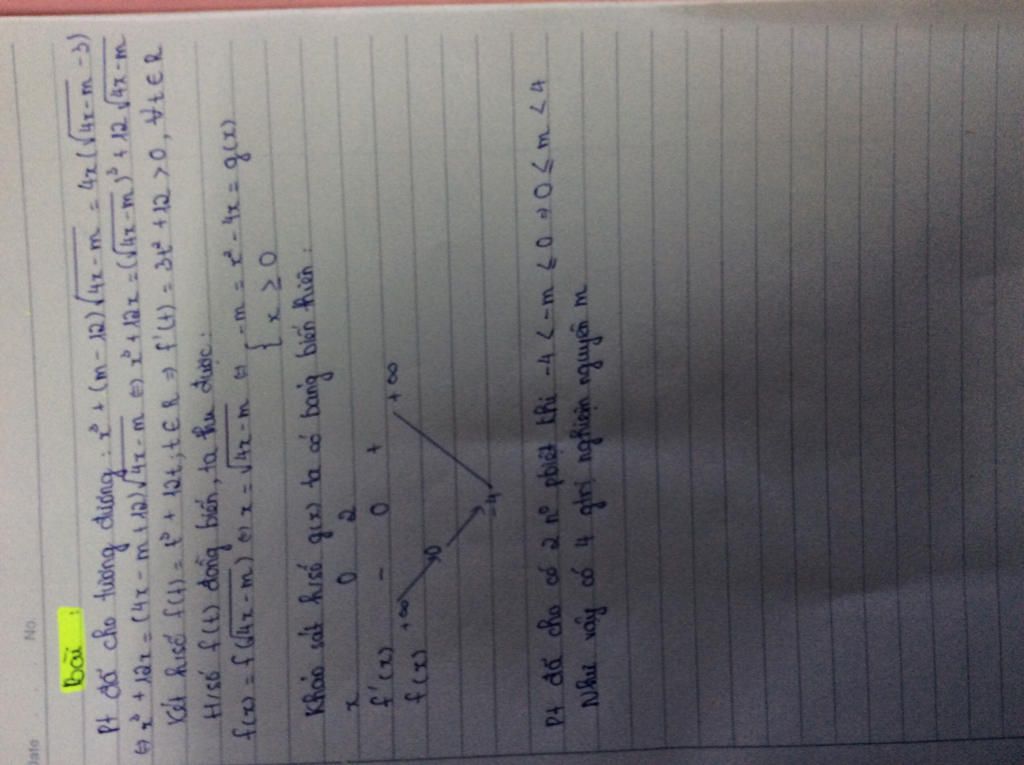 Date No.
Bài :
Pt đã cho tương đương : x³ + (m - 12)√4x - m = 4x(√4x - m - 3)
⇔ x³ + 12x = (4x - m + 12)√4x - m ⇔ x³ + 12x = (√4x - m)³ + 12√4x - m
Xét h/số f(t) = t³ + 12t, t ∈ R ⇒ f'(t) = 3t² + 12 > 0, ∀t ∈ R
H/số f(t) đồng biến, ta thu được :
f(x) = f(√4x - m) ⇔ x = √4x - m ⇔ { -m = x² - 4x = g(x)
{ x ≥ 0
Khảo sát h/số g(x) ta có bảng biến thiên :
x 0 2
f'(x) - 0 +
f(x) +∞ 0 +∞
-4
Pt đã cho có 2 n⁰ pbiệt khi -4 < -m ≤ 0 ⇒ 0 ≤ m < 4
Như vậy có 4 gtrị nghiệm nguyên m